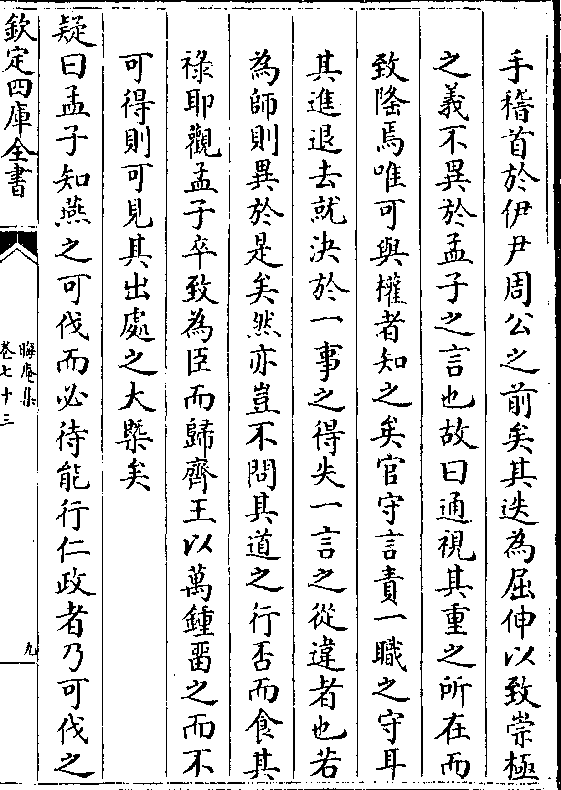 手稽首於伊尹周公之前矣其迭為屈伸以致崇極
之義不異於孟子之言也故曰通視其重之所在而
致隆焉唯可與權者知之矣官守言責一職之守耳
其進退去就決於一事之得失一言之從違者也若
為師則異於是矣然亦豈不問其道之行否而食其
祿耶觀孟子卒致為臣而歸齊王以萬鍾畱之而不
可得則可見其出處之大槩矣
疑曰孟子知燕之可伐而必待能行仁政者乃可伐之
欽定四庫全書
晦庵集
卷七十三
九